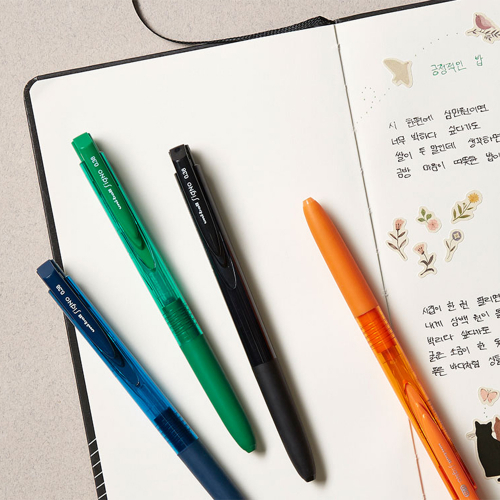 긍정적인 밥
시 한편에 삼만원이면
너무 박하다 싶다가도
쌀이 두 말인데 생각하면
금방 마음이 따뜻한 밥이
시집이 한 권 팔리면
내게 삼백 원이
박리다 싶다가도
굵은 소금이 한
푸른 바다처럼
uni-ball Signo 0.38
uni-ball Signo 0.38
uni-ball Signo 0.38